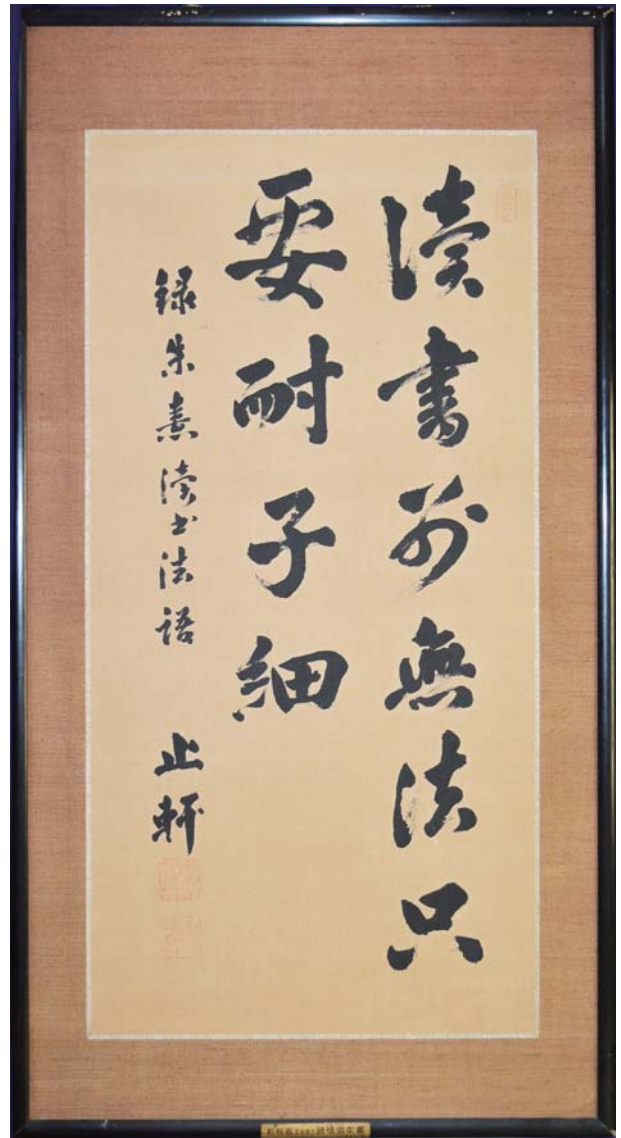 讀書別無法只
要耐子細
錄朱熹讀書法語 止軒